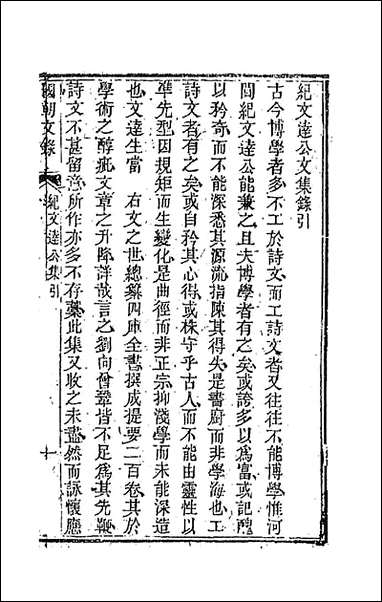 紀文達公文集錄引
古今博學者多不工於詩文而工詩文者又往往不能博學惟河
間紀文達公能兼之且夫博學者有之矣或誇多以爲富或記醜
以矜奇而不能深悉其源流指陳其得失是書廚而非學海也工
詩文者有之矣或自矜其心得或株守乎古人而不能由靈性以
準先型因規矩而生變化是曲徑而非正宗抑淺學而未能深造
也文達生當 右文之世總纂四庫全書撰成提要二百卷其於
學術之醇疵文章之升降詳哉言之劉向曾鞏皆不足爲其先鞭
詩文不甚留意所作亦多不存藁此集又收之未盡然而詠懷應
國朝文錄 紀文達公集引 十